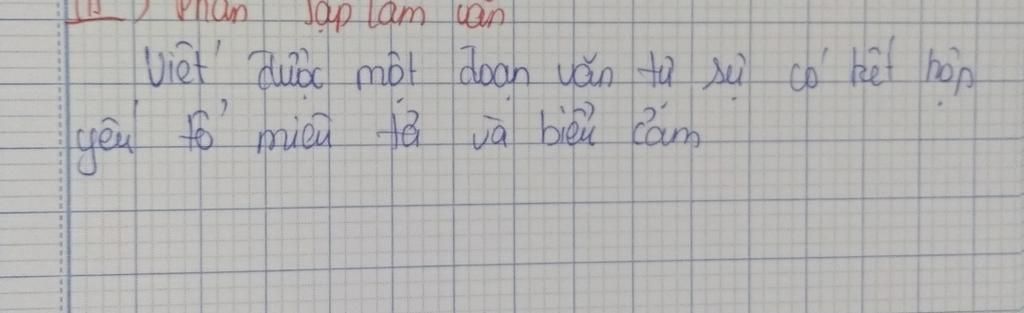 III) Phần Tập làm văn
Viết được một đoạn văn tự sự có kết hợp
yếu tố miêu tả và biểu cảm